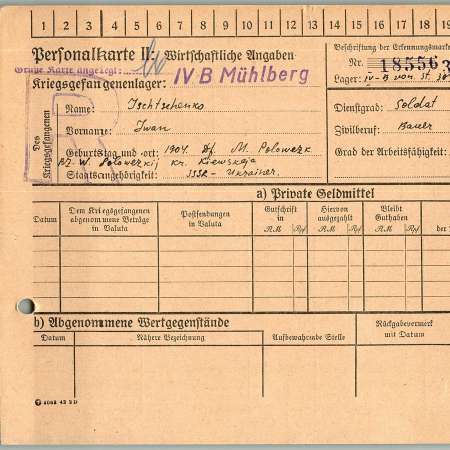 1 2 3 4 5 6 7 8 9 10 11 12 13 14 15 16 17 18 19
Personalkarte II: Wirtschaftliche Angaben
Grüne Karte angelegt:
Kriegsgefangenenlager: IV B Mühlberg
Beschriftung der Erkennungsmarke
Nr. 185563
Lager: IV-B
Des Kriegsgefangenen
Name: Ischtschenko
Vorname: Iwan
Geburtstag und -ort: 1904. Df. M. Polowezk
Bz. W. Polowezkij Kr. Kiewskaja
Staatsangehörigkeit: SSSR - Ukrainer.
Dienstgrad: Soldat
Zivilberuf: Bauer
Grad der Arbeitsfähigkeit:
a) Private Geldmittel
Datum
Dem Kriegsgefangenen abgenommene Beträge in Valuta
Postsendungen in Valuta
Gutschrift in
RM Rpf
Hiervon ausgezahlt
RM Rpf
Bleibt Guthaben
RM Rpf
der
b) Abgenommene Wertgegenstände
Datum
Nähere Bezeichnung
Aufbewahrende Stelle
Rückgabevermerk mit Datum
4062 42 2 D